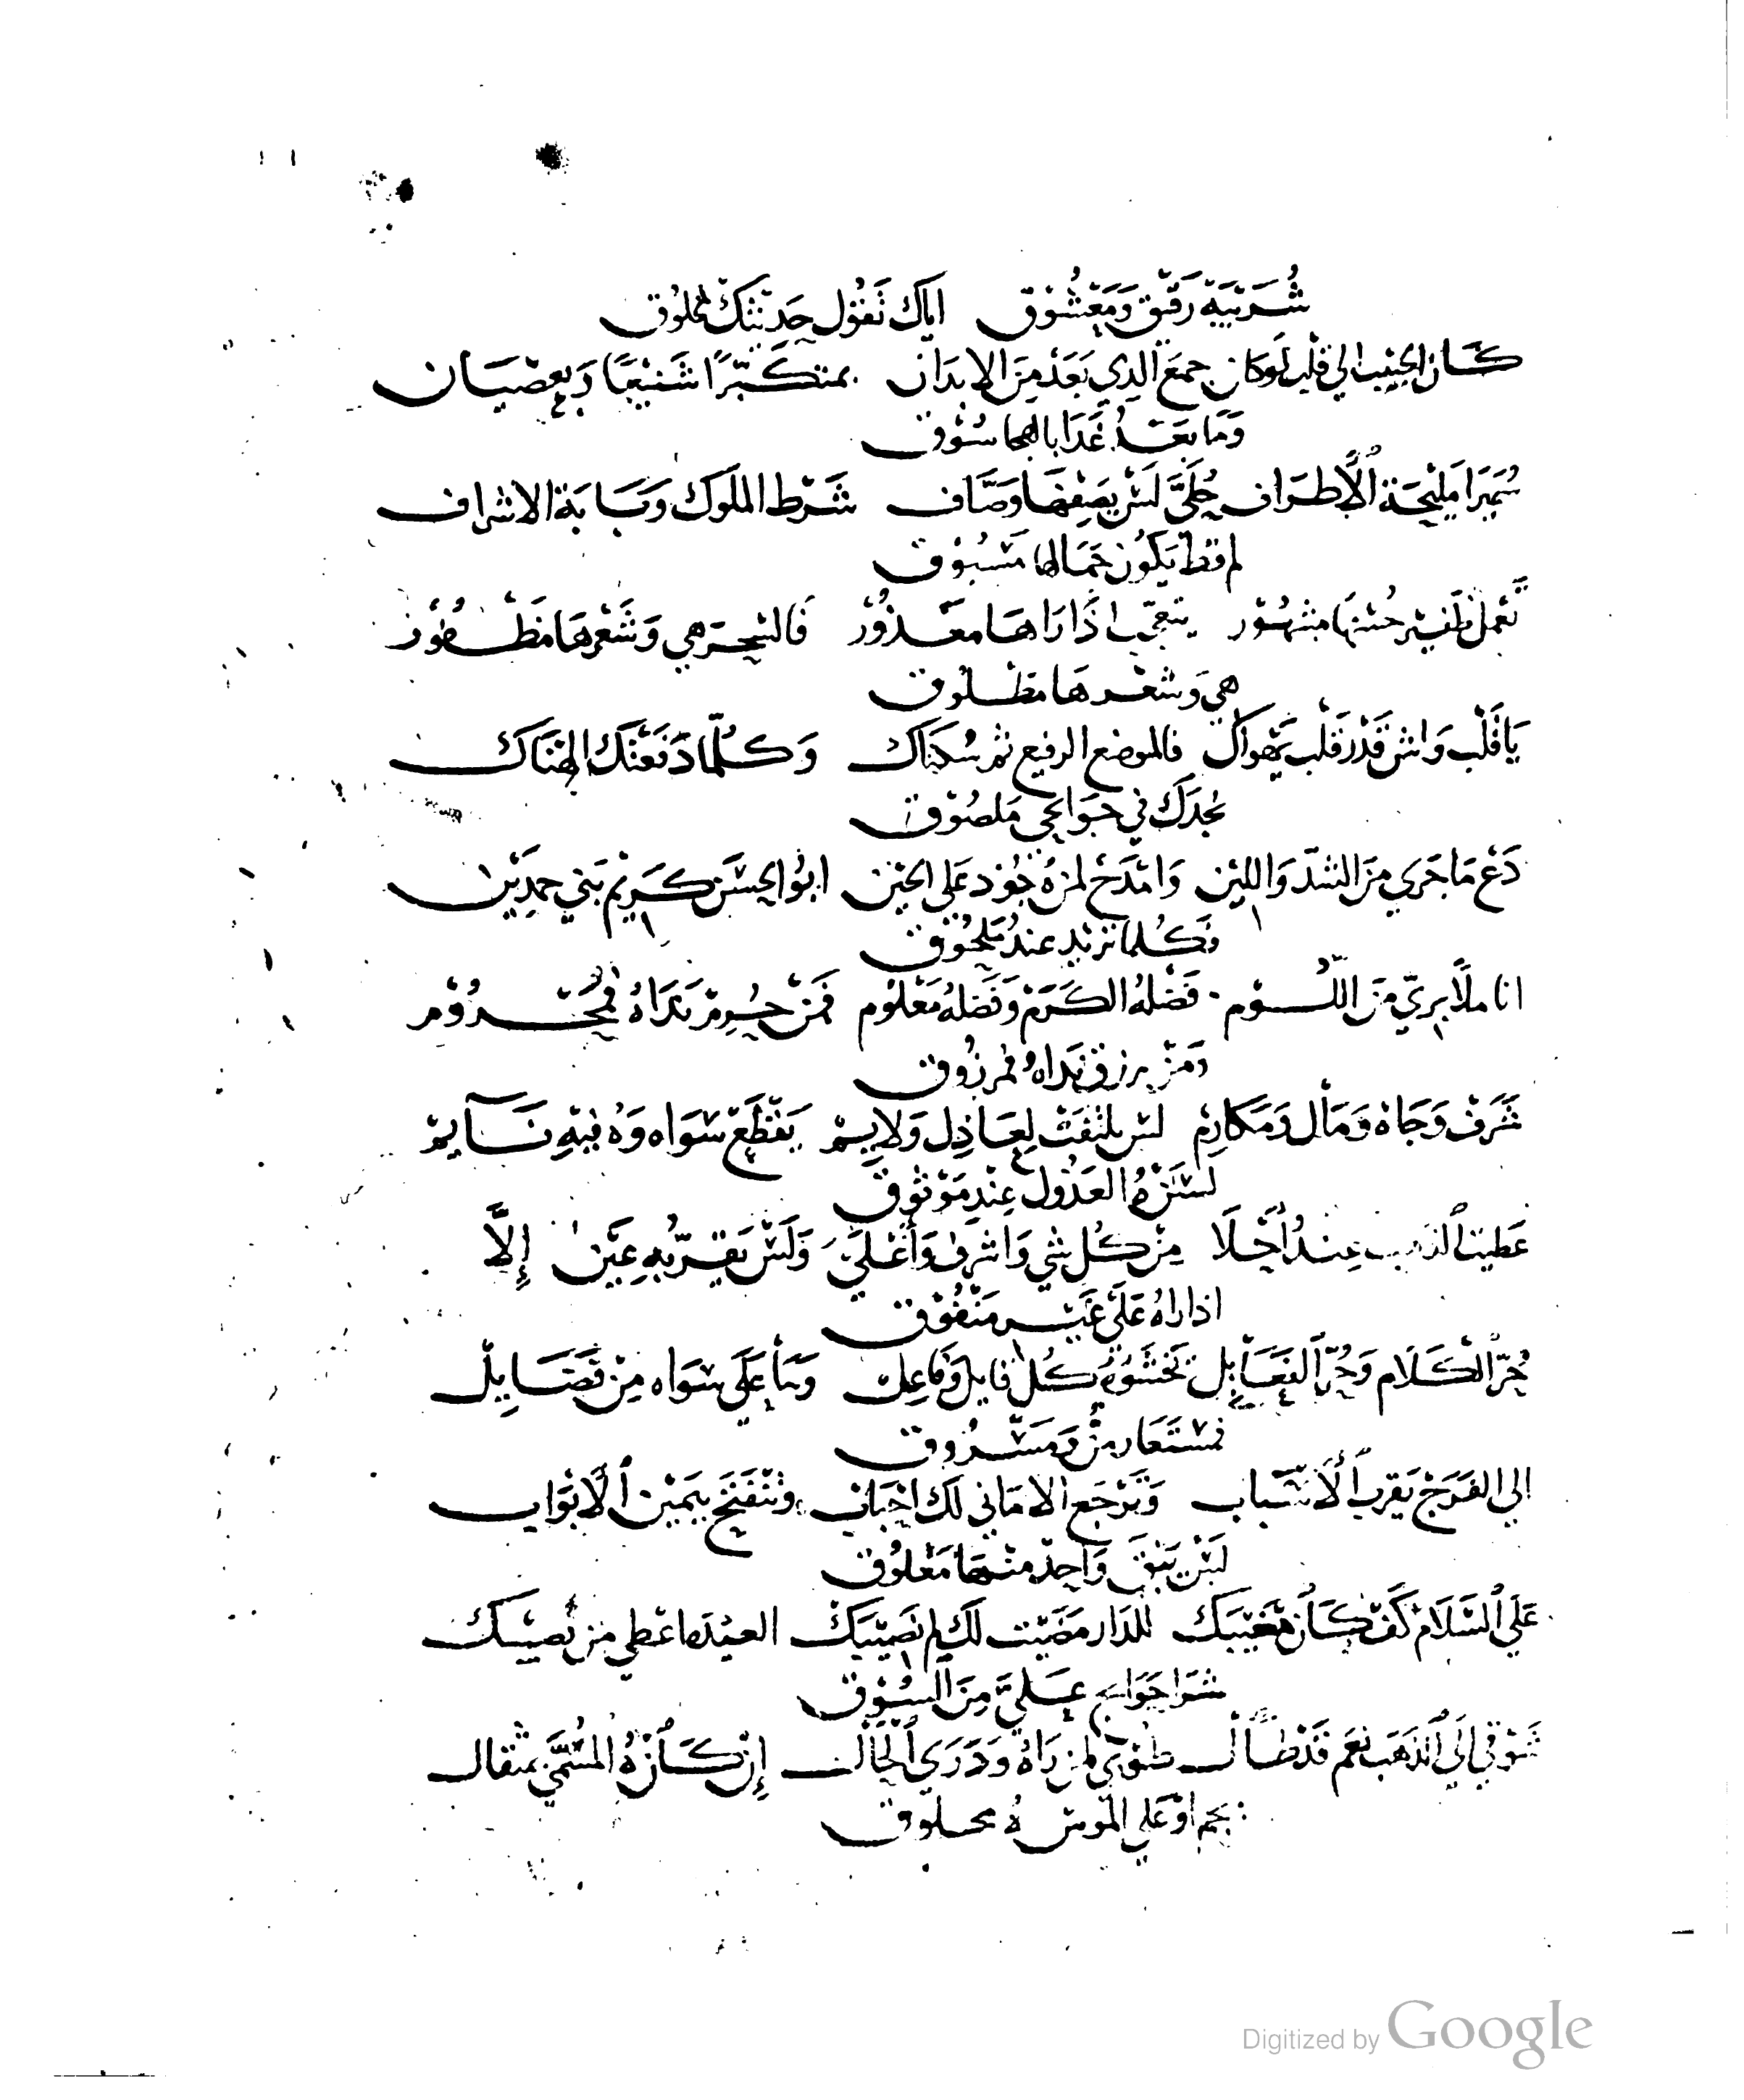 شُرَيْبَة رَقيق وَمَعْشُوق اياك تَقُول حَديثك مخلوق
كَان الحبيب الي قلب لَو كان جمعَ الذي بَعَد مِن الابدان متكبّرًا شَنيعًا وَبعصيان
وَمَا بَعَد غَدَا بالهجا سُوق
سُمَيرا مليحَة الأطرَاف حُلَيّ لَسْ يصِفهَا وصّاف شَرْط الملوك وَبَابَة الاشراف
لم قط يَكون جَمَالها مَسْبُوق
تعمل حُسْنهَا مشهُور يتعجّب اذَا رَاهَا مَعْذُور فَالسّحر هي وَشَعْرهَا مَظْفُور
هي وَشعْرهَا مطلوق
يَا قَلْب وَاش قَدْر قَلْب يَهْواك فالموضع الرفيع ثم سُكناك وَكلّما دَفَعْتك الهناك
نجدَك في جَوَانحي مَلصُوق
دَعْ مَا جَري مِن الشدّ وَاللين وَامْدَحْ لمن هُ جُود عَلي الحين ابُو الحسَن كَرِيْم بَني حمدِيْن
فكُلما تريد عندُ مَلحُوق
انا ملّا بريّ مَن اللّوم فضلهُ الكَرَم وَفضلهُ مَعْلُوم فمَنْ حُرِم نَدَاهُ فمَحْرُوْم
وَمَنْ يرزق نَدَاهُ فمرزُوق
شَرَف وَجَاهْ وَمَال وَمَكارِم لَس يلتفَتْ لِعَاذِل وَلايِم يَقْطَع سَوَاه وَهُ فيْهِ نَايم
لسَنْ هُ العَذول عِنْدِ مَوْثوق
عَطيت الذهب عِندُ أَحْلَا مِنْ كُل شي وَاشرَف وَأَغْلَى وَلَسْ يَقرّ بهِ عيَن إِلَّا
اذا راهُ عَلَى غَيْر مَنْفُوق
حُرّ الْكلَام وَحُرّ الفعَايل تَخشَوْه كُل قايل وَفَاعِل وَمَا عَلَى سوَاه مِنْ فَضَايل
فَمسْتَعَار مِنُّ وَمَسْرُوق
الي الفَرَج يَقرب الْأَسْبَاب وَتَرْجَع الامَاني لك احْبَاب وتتفتح بيَمين الأبْوَاب
لَسْ يَبْقَى وَاحِدْ منهَا مَغْلُوق
عَلَي السّلَام كَفْ كَان مَغيْبَك للدَار مَضَيْت لَك لم نَصيْبَك العيْد مَا عَطي مِن نصيْبك
شرَا حَوَايج عَلَيَّ مِنَ السُّوق
شَوْقي الَي الذهَب نعَم قَدْ طَال طُوبَي لمن رَاهُ وَدَرَي الحَال إِنْ كَان هُ المسَمَّي بمثقال
بجم اوْ عَلي الموس هُ محلوق
Digitized by Google